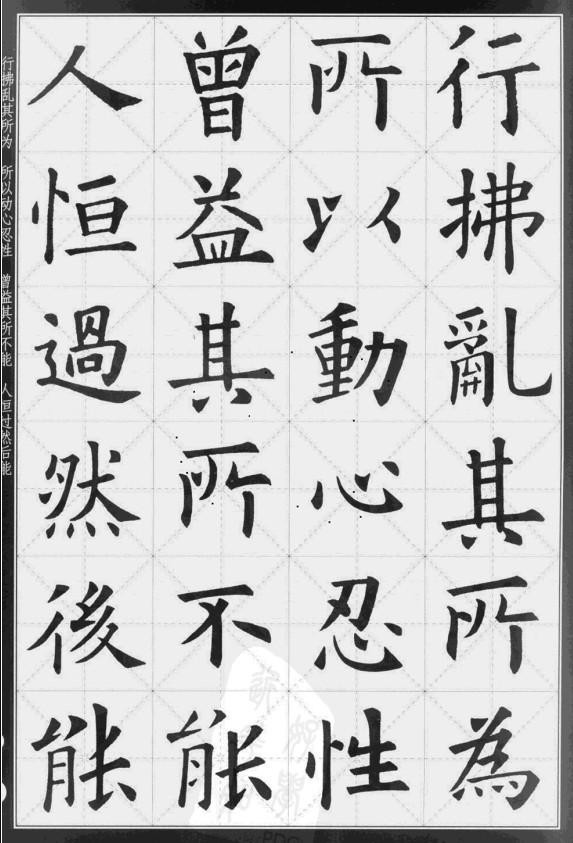 行拂亂其所為
所以動心忍性
曾益其所不能
人恒過然後能
行拂乱其所为 所以动心忍性 曾益其所不能 人恒过然后能